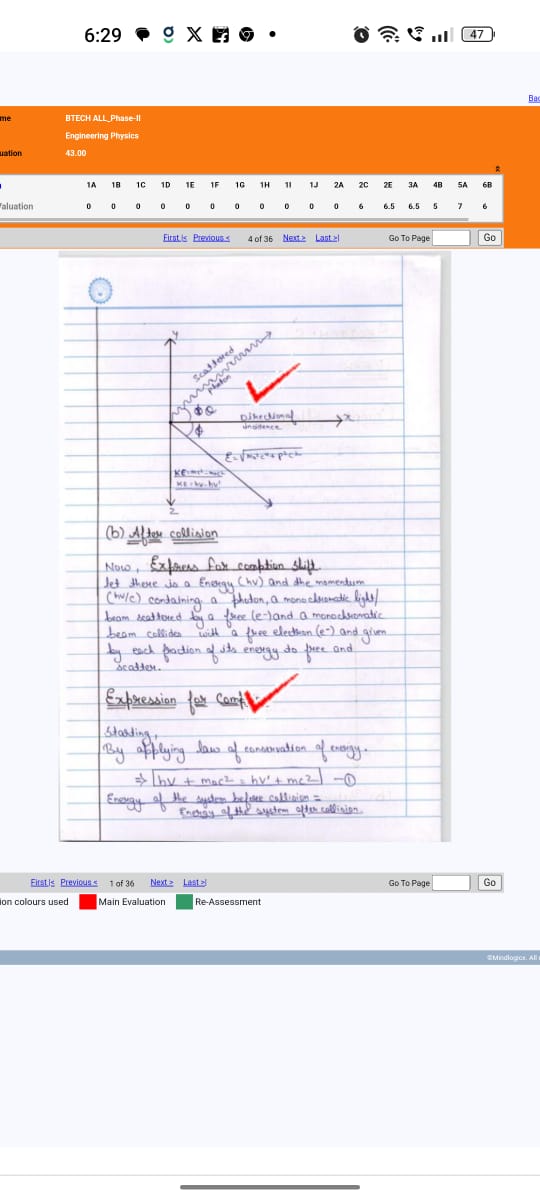 6:29
47
Bac
me
BTECH ALL_Phase-II
Engineering Physics
uation
43.00
1A 1B 1C 1D 1E 1F 1G 1H 1I 1J 2A 2C 2E 3A 4B 5A 6B
aluation 0 0 0 0 0 0 0 0 0 0 0 6 6.5 6.5 5 7 6
First |< Previous < 4 of 36 Next > Last >| Go To Page Go
y
Scattered
photon
θ
Directional
incidence
x
ϕ
E=√m₀²c⁴+p²c²
KE=mc²-m₀c²
KE=hν-hν'
z
(b) After collision
Now, Express for comption shift.
let there is a Energy (hν) and the momentum
(hν/c) containing a photon, a monochromatic light/
beam scattered by a free (e-) and a monochromatic
beam collides with a free electron (e-) and given
by each fraction of its energy to free and
scatter.
Expression for Comp
Starting,
By applying law of conservation of energy.
⇒ hν + m₀c² = hν' + mc² —①
Energy of the system before collision =
Energy of the system after collision.
First |< Previous < 1 of 36 Next > Last >| Go To Page Go
ion colours used Main Evaluation Re-Assessment
©Mindlogicx. All